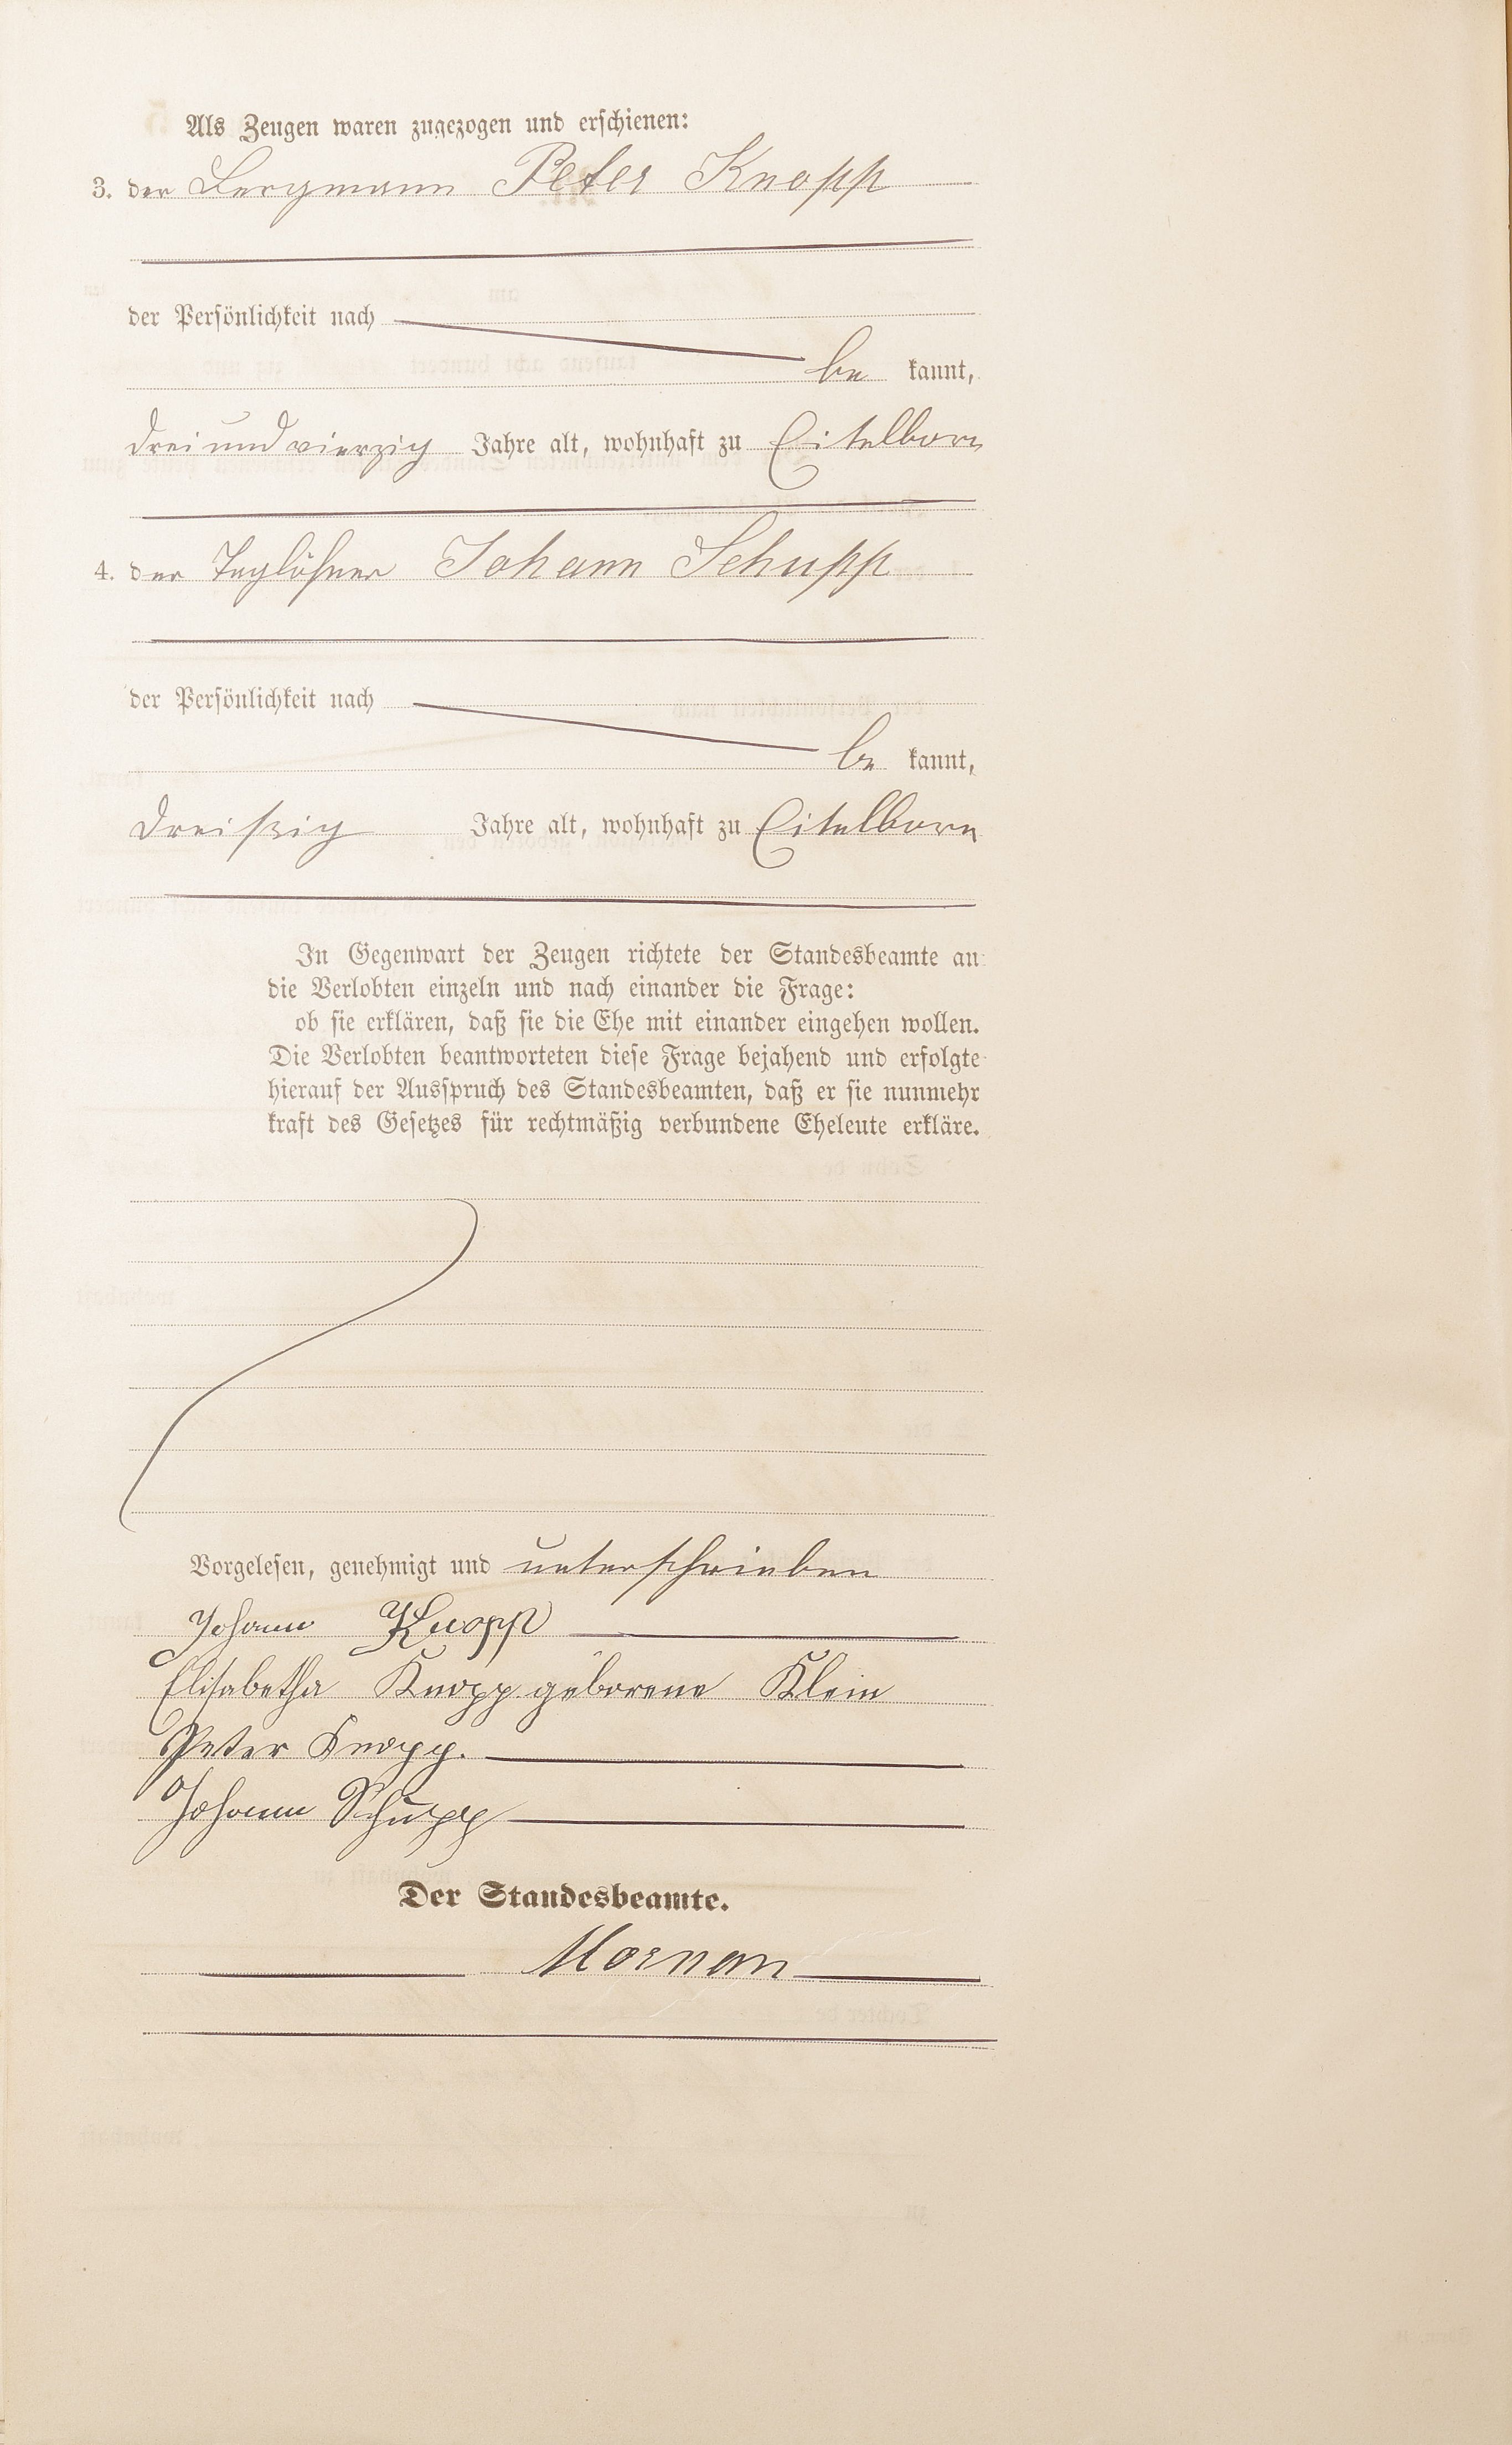 Als Zeugen waren zugezogen und erschienen:
3. der Bergmann Peter Knopp
der Persönlichkeit nach
be kannt,
drei und vierzig Jahre alt, wohnhaft zu Eitelborn
4. der Taglöhner Johann Schupp
der Persönlichkeit nach
be kannt,
dreißig Jahre alt, wohnhaft zu Eitelborn
In Gegenwart der Zeugen richtete der Standesbeamte an
die Verlobten einzeln und nach einander die Frage:
ob sie erklären, daß sie die Ehe mit einander eingehen wollen.
Die Verlobten beantworteten diese Frage bejahend und erfolgte
hierauf der Ausspruch des Standesbeamten, daß er sie nunmehr
kraft des Gesetzes für rechtmäßig verbundene Eheleute erkläre.
Vorgelesen, genehmigt und unterschrieben
Johann Knopp
Elisabetha Knopp geborene Klein
Peter Knopp.
Johann Schupp
Der Standesbeamte.